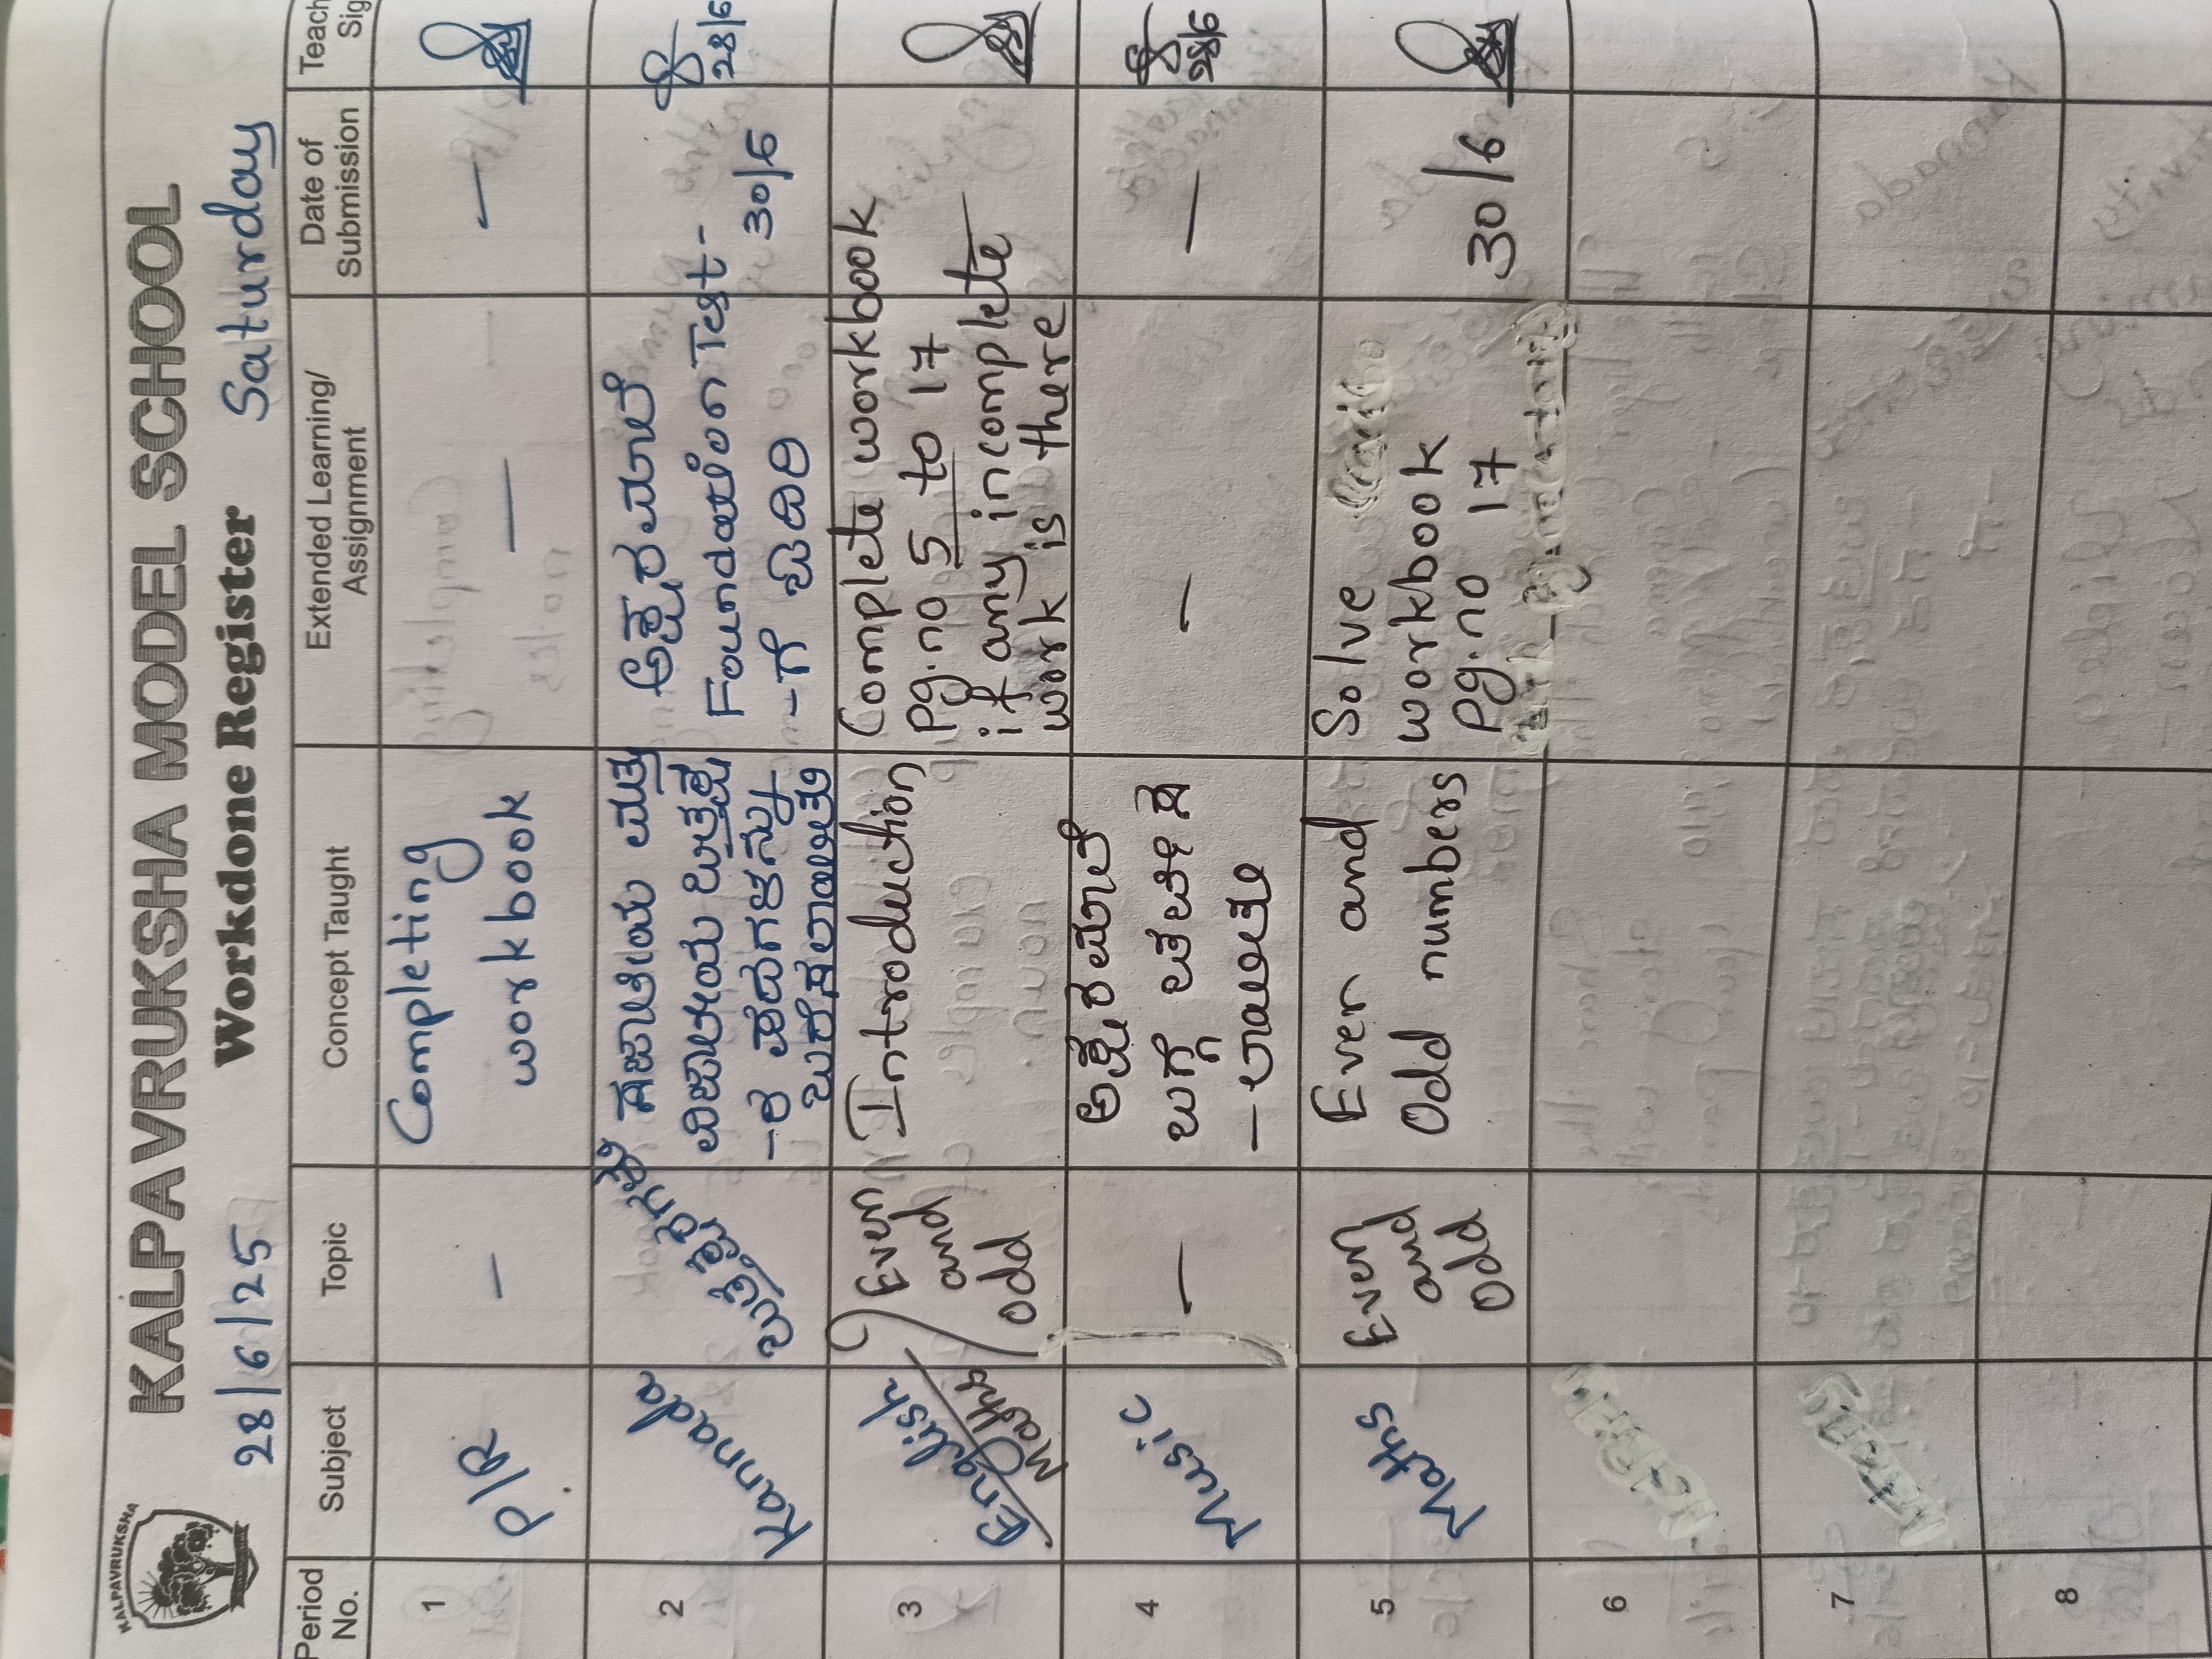 KALPAVRUKSHA
KALPAVRUKSHA MODEL SCHOOL
28/6/25 Workdone Register Saturday
Period No. Subject Topic Concept Taught Extended Learning/ Assignment Date of Submission Teach Sig
1 P/R — Completing workbook — —
2 Kannada
ಸಜಾತೀಯ ಮತ್ತು
ವಿಜಾತೀಯ ಒತ್ತಕ್ಷ
-ರ ಪದಗಳನ್ನು
ಬರೆಸಲಾಯಿತು
ಅಕ್ಷರಮಾಲೆ
Foundation Test-
-ಗೆ ಓದಿರಿ
30/6
28/6
3 English Maths
Even
and
odd
Introduction
Complete workbook
pg.no 5 to 17
if any incomplete
work is there
4 Music —
ಅಕ್ಷರಮಾಲೆ
ಬಗ್ಗೆ ಚರ್ಚಿಸ
-ಲಾಯಿತು
— —
28/6
5 Maths
Even
and
odd
Even and
Odd numbers
Solve
workbook
Pg.no 17
30/6
6
7
8